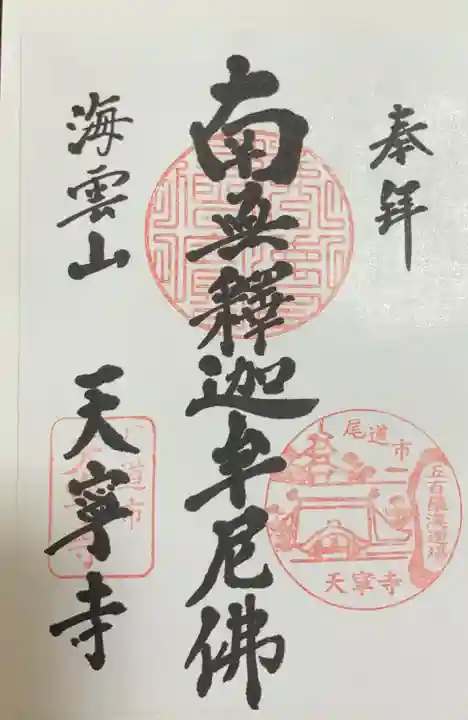 奉拜
南無釋迦牟尼佛
海雲山
天寧寺
尾道市
五百羅漢道場
天寧寺